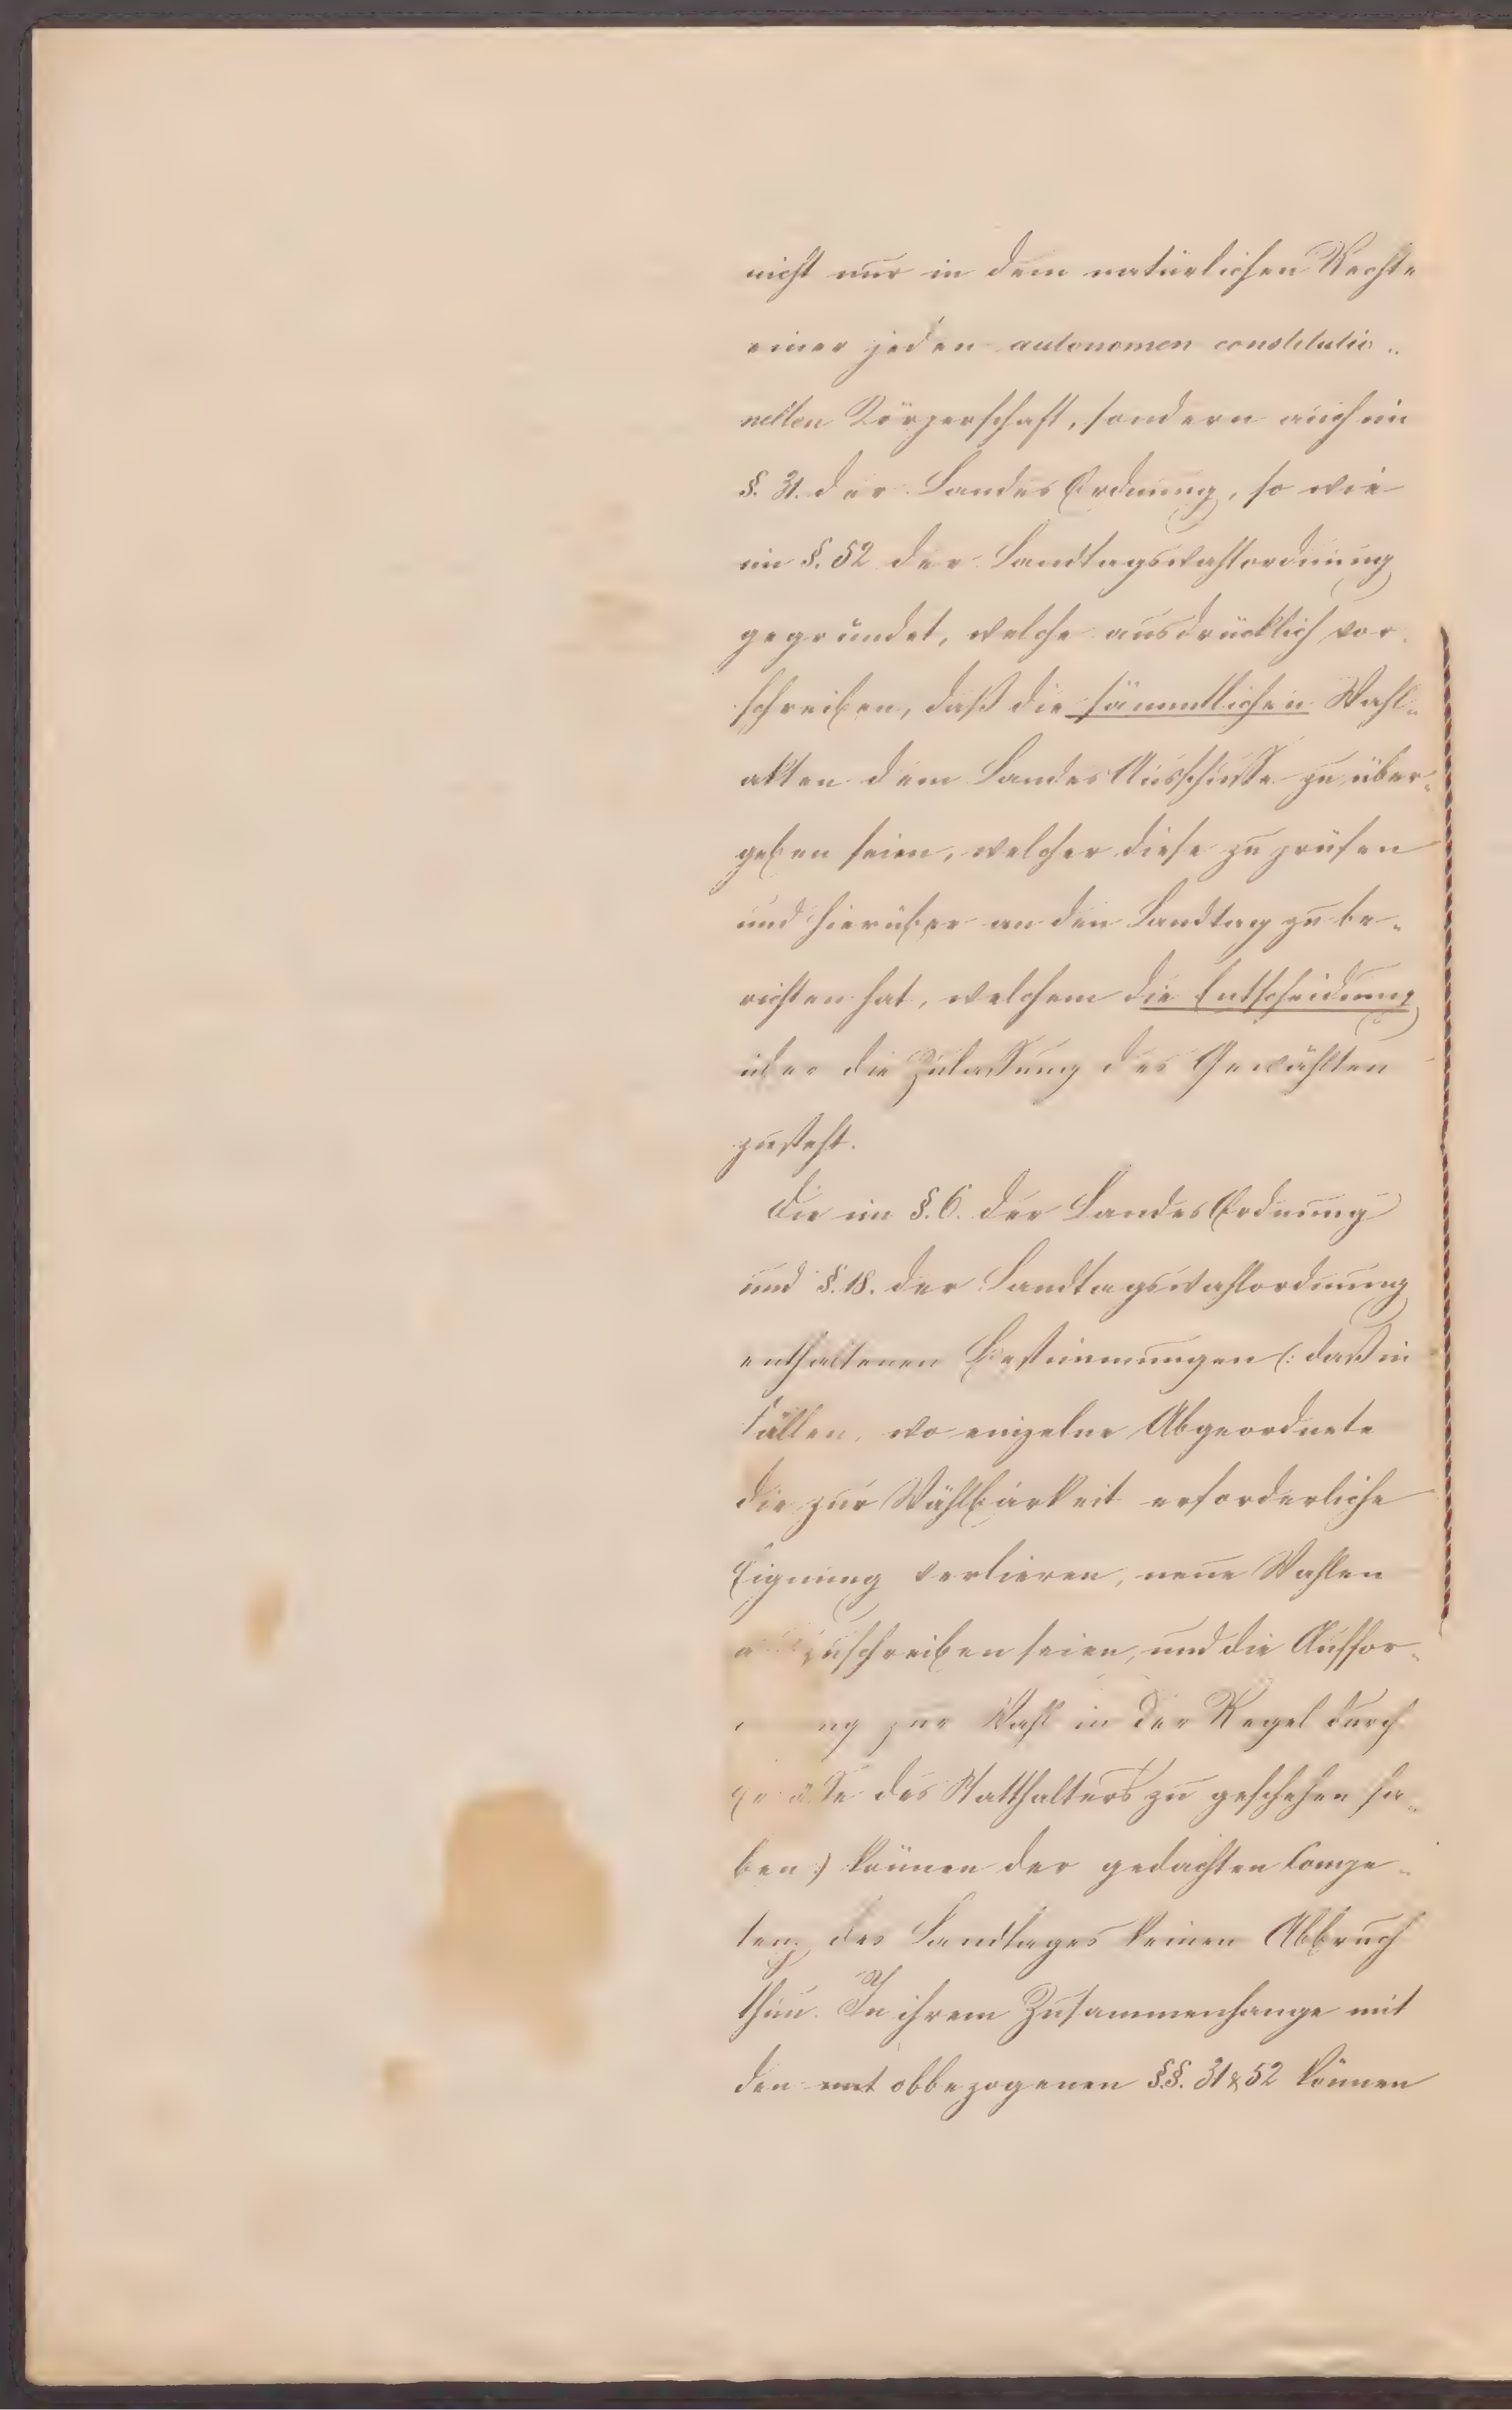 nicht nur in dem natürlichen Rechte
einer jeden autonomen constitutio„
nellen Körperschaft, sondern auch im
§. 31. der Landes Ordnung, so wie
im §. 52 der Landtagswahlordnung
gegründet, welche ausdrücklich vor„
schreiben, daß die sämmtlichen Wahl„
akten dem Landes Ausschusse zu über„
geben seien, welcher diese zu prüfen
und hierüber an den Landtag zu be„
richten hat, welchem die Entscheidung
über die Zulassung des Gewählten
zusteht.
Die im §. 6. der Landes Ordnung
und §. 18. der Landtagswahlordnung
enthaltenen Bestimmungen (: daß in
Fällen, wo einzelne Abgeordnete
die zur Wählbarkeit erforderliche
Eignung verlieren, neue Wahlen
a zuschreiben seien, und die Auffor„
ng zur Wahl in der Regel durch
des Statthalters zu geschehen ha„
ben :) können der gedachten Compe„
tenz des Landtages keinen Abbruch
thun. In ihrem Zusammenhange mit
den obbezogenen §.§. 31 & 52 können